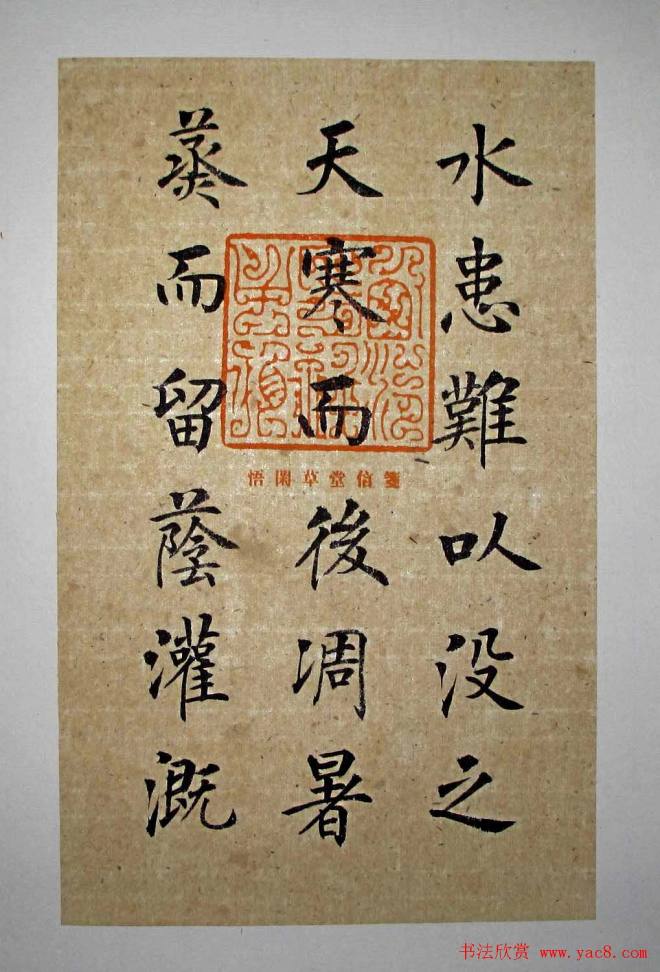 水患難以没之
天寒而後凋暑
蒸而留蔭灌溉
悟閑草堂信箋
书法欣赏 www.yac8.com